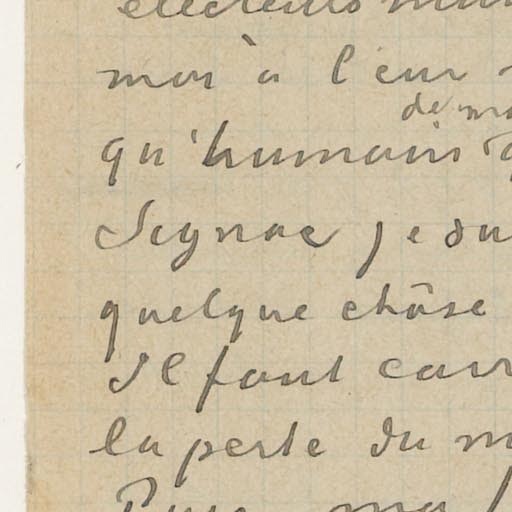 mais à l'eur
de
qu'humain
Signac je su
quelque chôse
Il faut
la perte du m